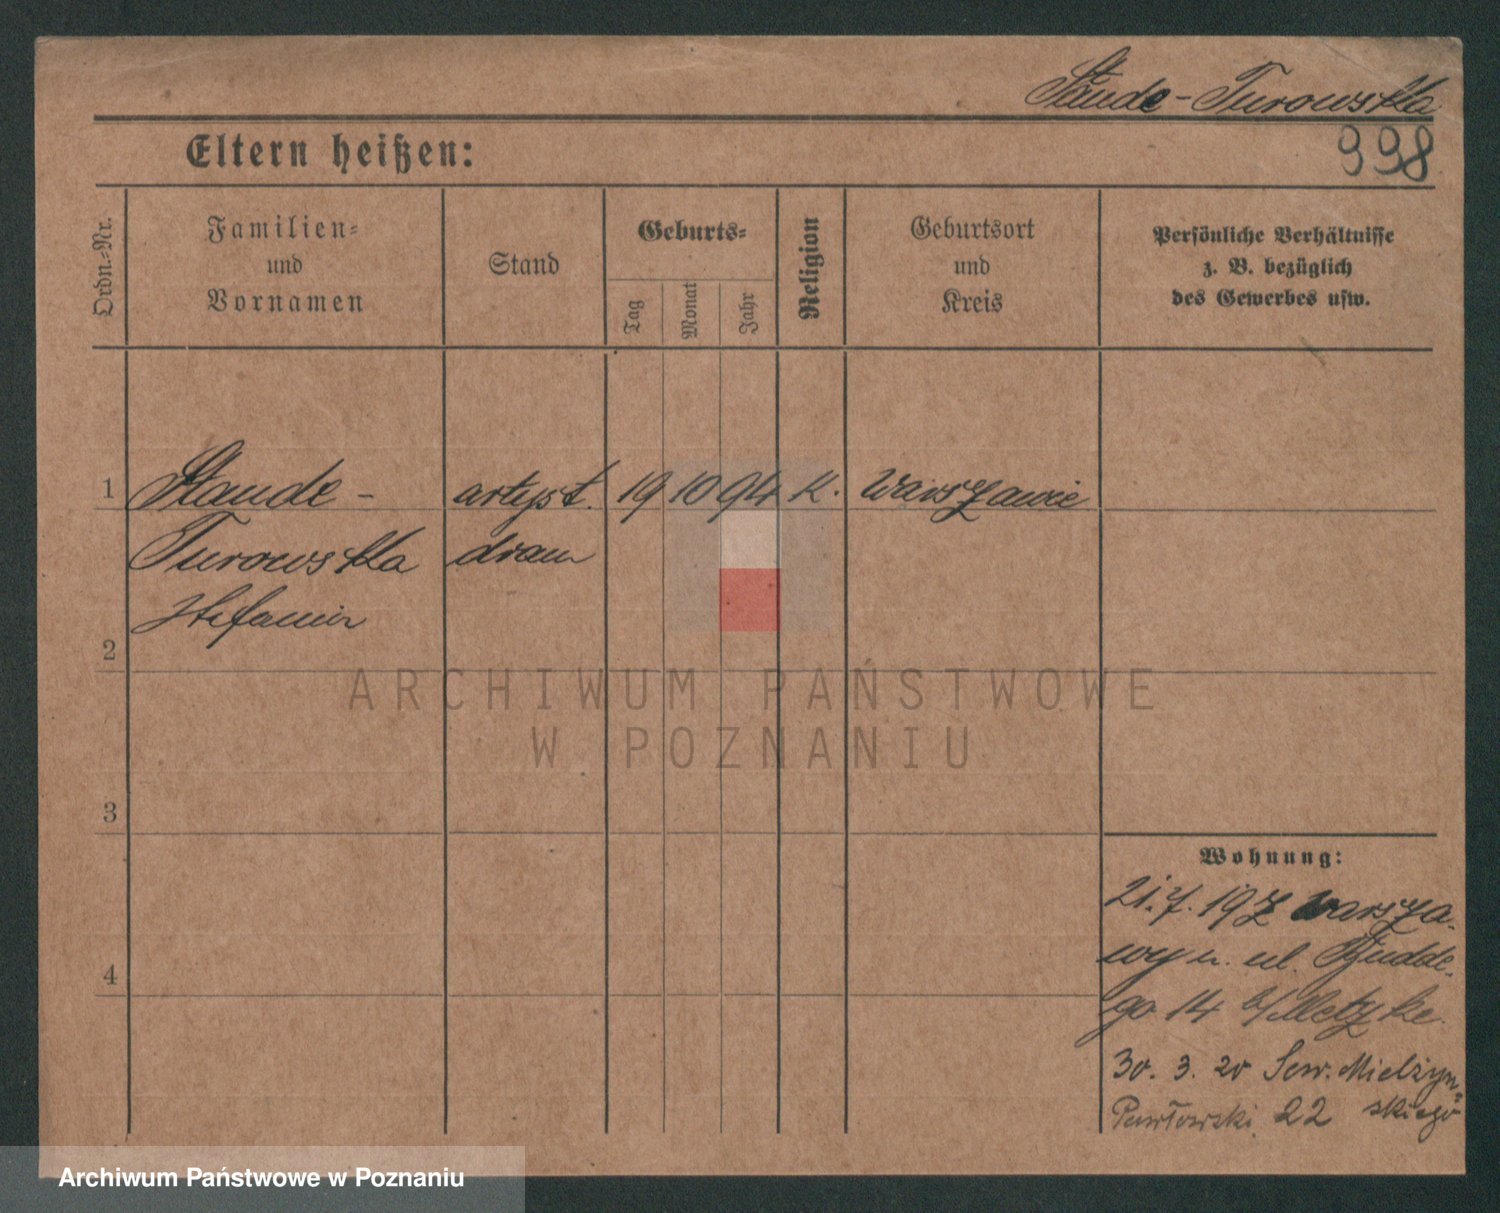 Staude - Turowska
Eltern heißen:
998
Ordn.-Nr.
Familien-
und
Vornamen
Stand
Geburts-
Tag
Monat
Jahr
Religion
Geburtsort
und
Kreis
Persönliche Verhältnisse
z. B. bezüglich
des Gewerbes usw.
1 Staude - artyst. 19 10 94 K. Warszawie
Turowska dram
Stefania
2
ARCHIWUM PAŃSTWOWE
W POZNANIU
3
4
Wohnung:
21.7. 19 z Warsza-
wy n. ul.
go 14 b/ Metzke.
30. 3. 20 Sew. Mielżyn-
Pawłowski 22 skiego
Archiwum Państwowe w Poznaniu